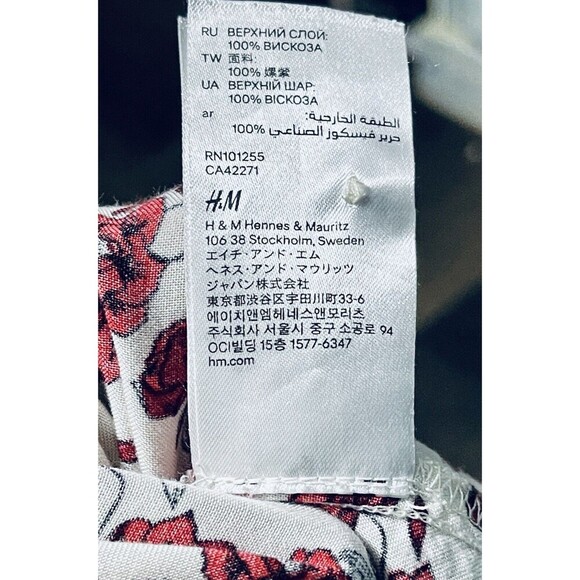 RU ВЕРХНИЙ СЛОЙ:
100% ВИСКОЗА
TW 面料:
100% 嫘縈
UA ВЕРХНІЙ ШАР:
100% ВІСКОЗА
ar الطبقة الخارجية:
100% حرير فيسكوز الصناعي
RN101255
CA42271
H&M
H & M Hennes & Mauritz
106 38 Stockholm, Sweden
エイチ・アンド・エム
ヘネス・アンド・マウリッツ
ジャパン株式会社
東京都渋谷区宇田川町33-6
에이치앤엠헤네스앤모리츠
주식회사 서울시 중구 소공로 94
OCI빌딩 15층 1577-6347
hm.com